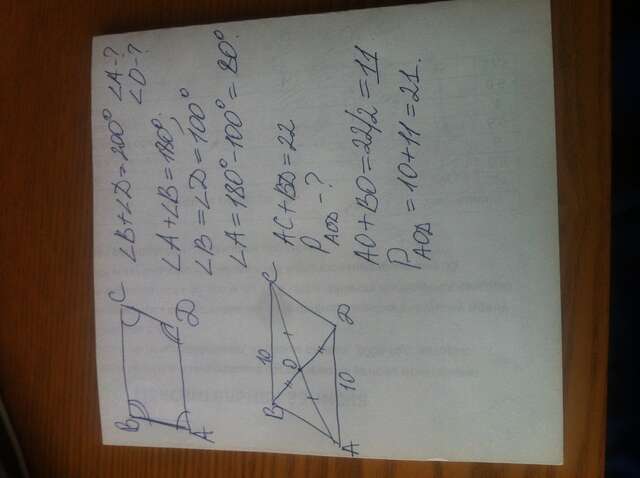 B C
A D
∠B+∠D=200° ∠A-?
∠D-?
∠A+∠B=180°;
∠B=∠D=100°
∠A=180°-100°=80°.
B 10 C
O
A 10 D
AC+BD=22
P_AOD-?
AO+BO=22/2=11
P_AOD=10+11=21.